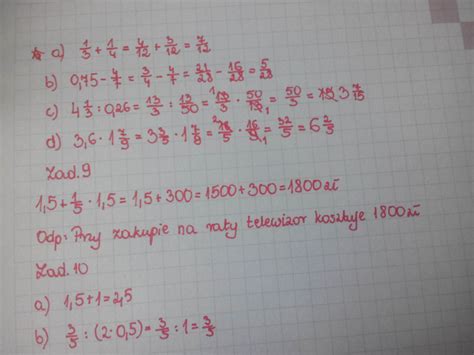 a) 1/3 + 1/4 = 4/12 + 3/12 = 7/12
b) 0,75 - 4/7 = 3/4 - 4/7 = 21/28 - 16/28 = 5/28
c) 4 1/3 : 0,26 = 13/3 : 13/50 = 13/3 · 50/13 = 50/3 =
d) 3,6 · 1 7/9 = 3 3/5 · 1 7/9 = 18/5 · 16/9 = 32/5 = 6 2/5
Zad. 9
1,5 + 1/5 · 1,5 = 1,5 + 300 = 1500 + 300 = 1800 zł
Odp: Przy zakupie na raty telewizor kosztuje 1800 zł
Zad. 10
a) 1,5 + 1 = 2,5
b) 3/5 : (2 · 0,5) = 3/5 : 1 = 3/5